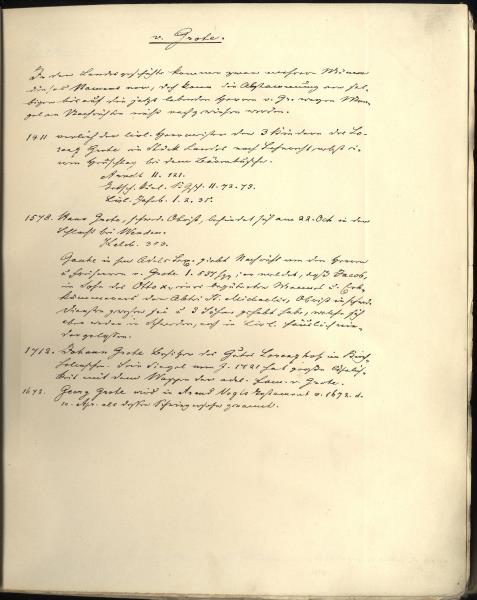 v. Grote.
In der Landesgeschichte kommen zwar mehrere Männer
dieses Namens vor, doch kann die Abstammung
bis auf die jetzt lebenden Herren v. Gr. wegen Man-
gel an Nachrichten nicht nachgewiesen werden.
1411 verlieh der livl. Herrmeister den 3 Kindern des Lo-
renz Grote ein Stück Landes nach Lehnrecht, nebst
Heuschlag bei dem
Arndt II. 121.
II. 72. 73.
Livl. I. 2. 35.
1578. Hans Grote, schwed. Obrist, befindet sich am 22. Oct. in der
Schlacht bei Wenden.
Kelch. 333.
Gauhe in sm Adels Lex. giebt Nachricht von den Herren
u. Freiherren v. Grote I. er meldet, daß Jacob,
ein Sohn des Otto
der Abtei St. Michaelis, Obrist in schwed.
Diensten gewesen sei u. 3 Söhne gehabt habe, welche sich
theils in Schweden, auch in Livl. häuslich nie-
dergelassen.
1712. Johann Grote Besitzer des Gutes Lorenzhof im Kirch.
Sein Siegel von J. 1721 hat große Ähnlich-
keit mit dem Wappen der adel. Fam. v. Grote.
1672. Georg Grote wird in Testament v. 1672 d.
als dessen Schwiegersohn genannt.